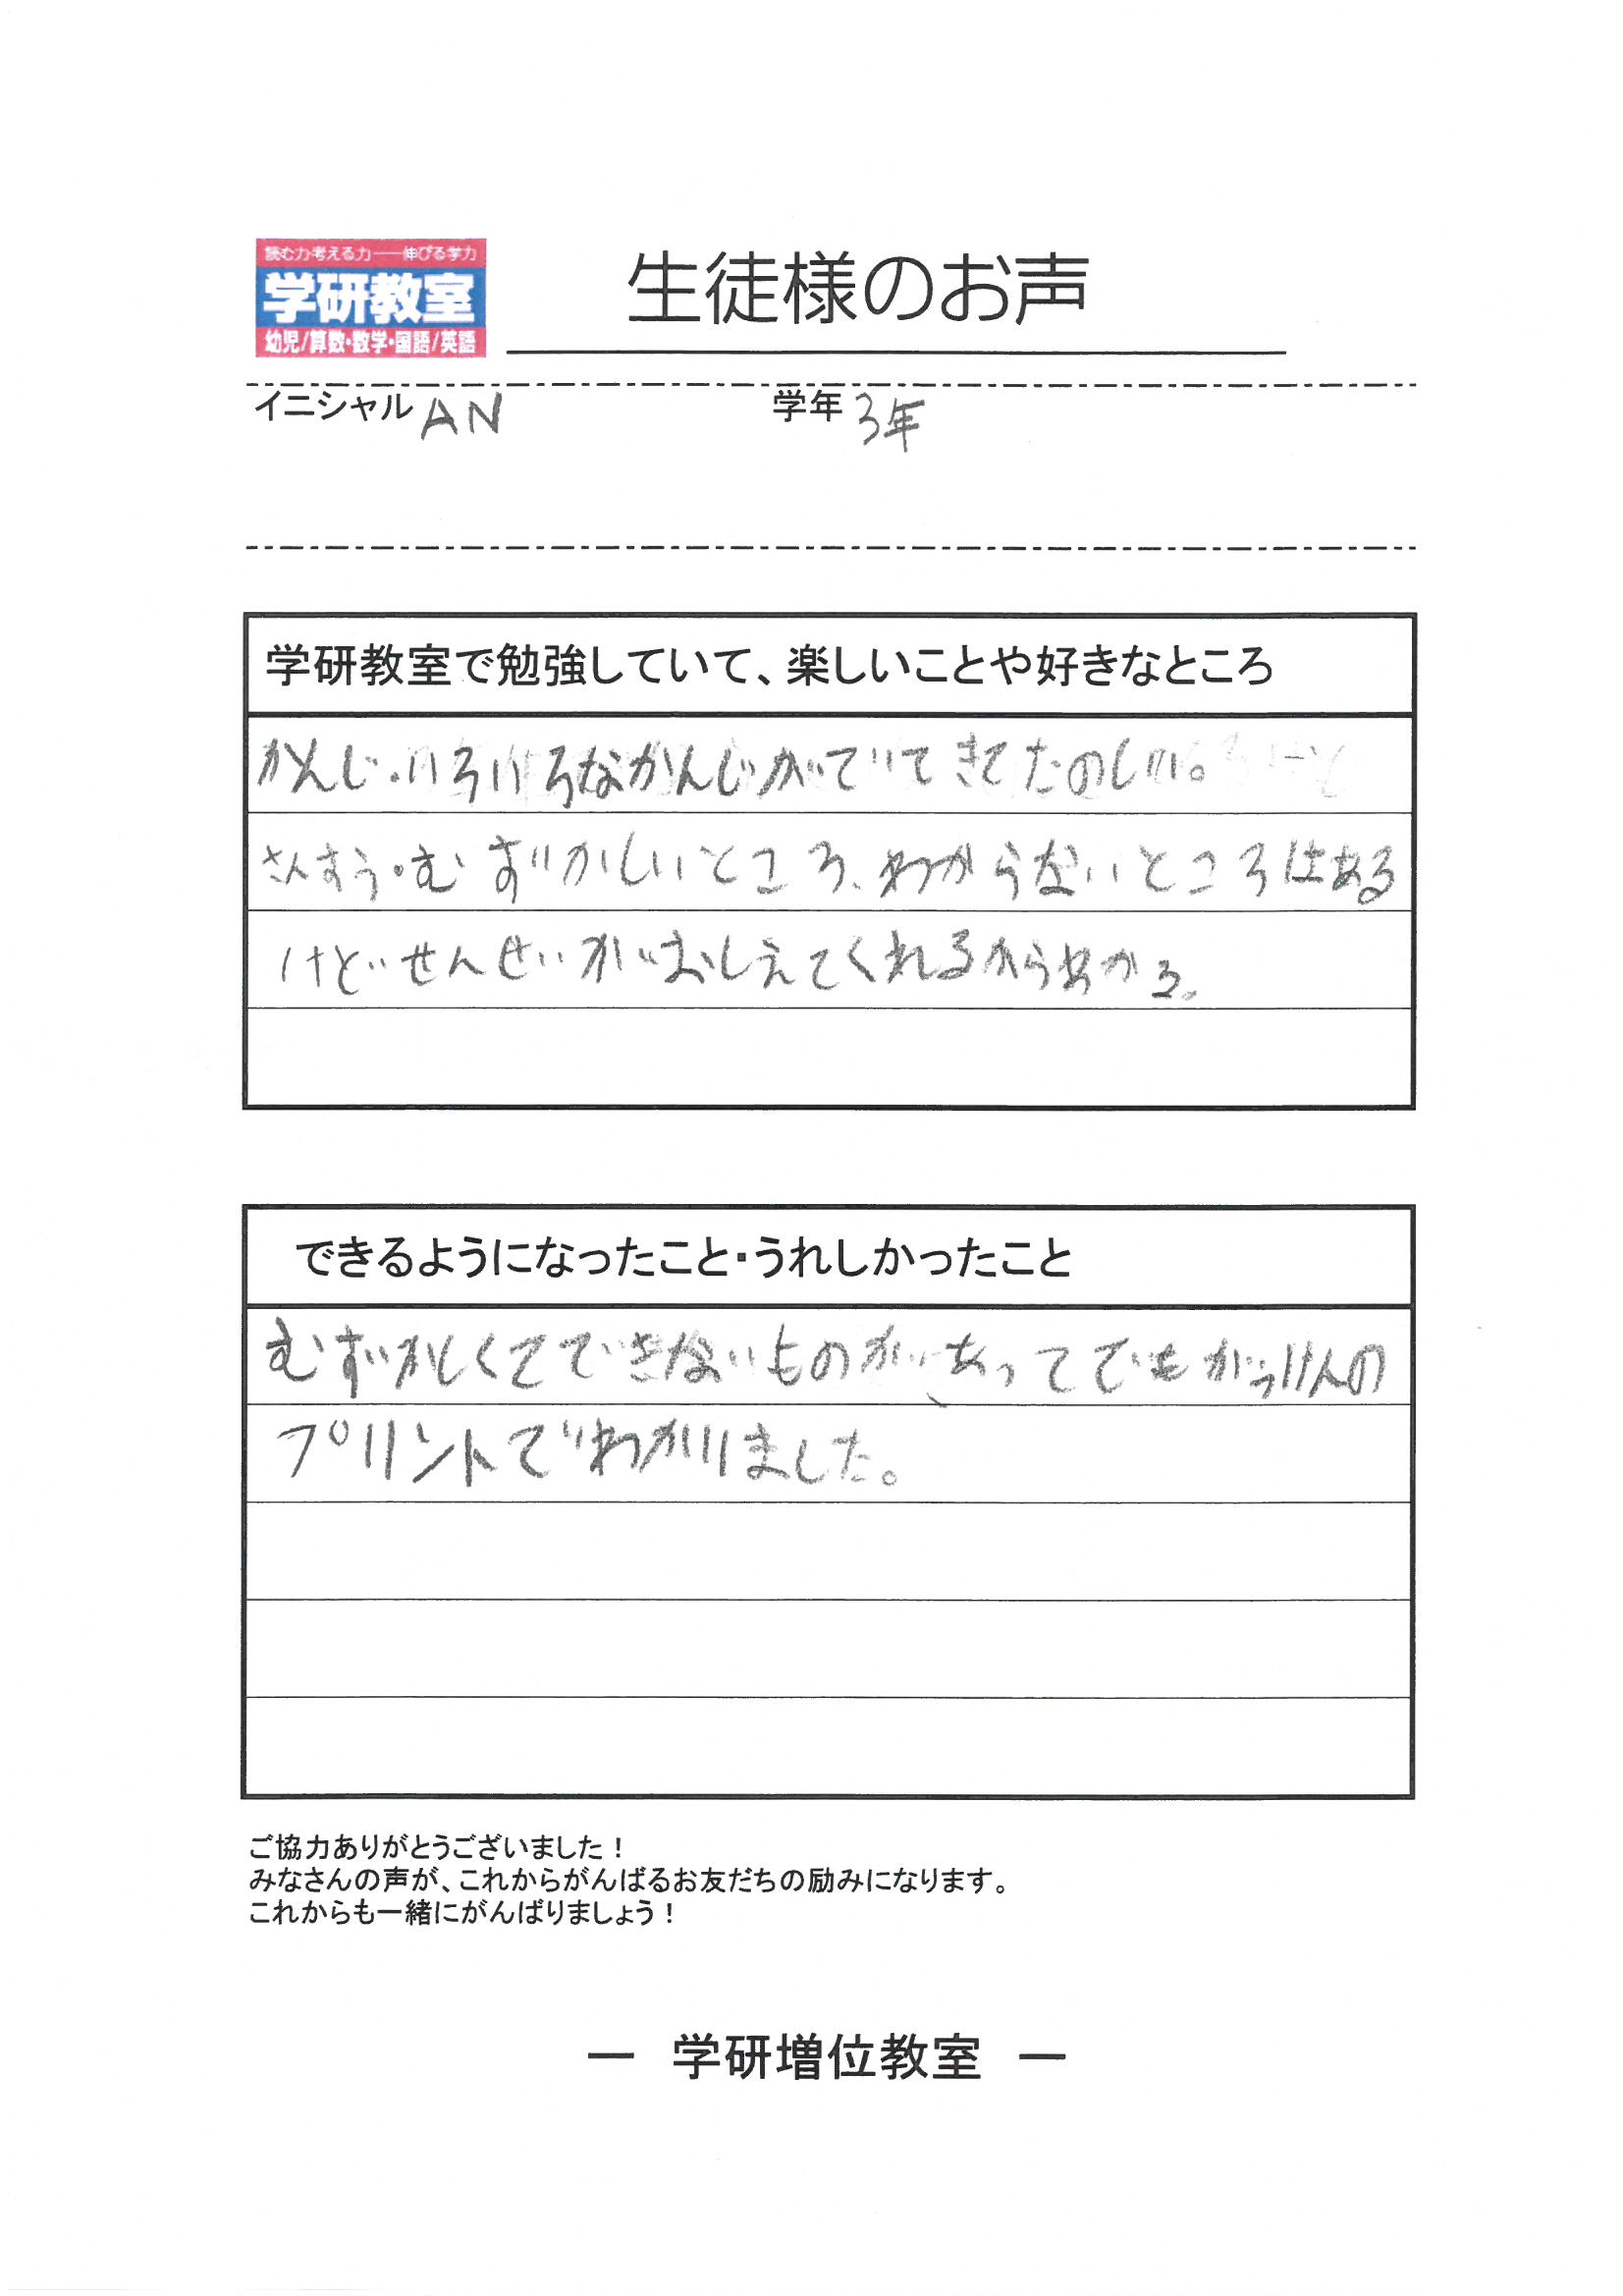 読む力考える力──伸びる学力
学研教室
幼児/算数・数学・国語/英語
生徒様のお声
イニシャル AN 学年 3年
学研教室で勉強していて、楽しいことや好きなところ
かんじ・いろいろなかんじがでてきてたのしい。
さんすう・むずかしいところ、わからないところはある
けどせんせいがおしえてくれるからわかる。
できるようになったこと・うれしかったこと
むずかしくてできないものがあってでもがっけんの
プリントでわかりました。
ご協力ありがとうございました！
みなさんの声が、これからがんばるお友だちの励みになります。
これからも一緒にがんばりましょう！
― 学研増位教室 ―